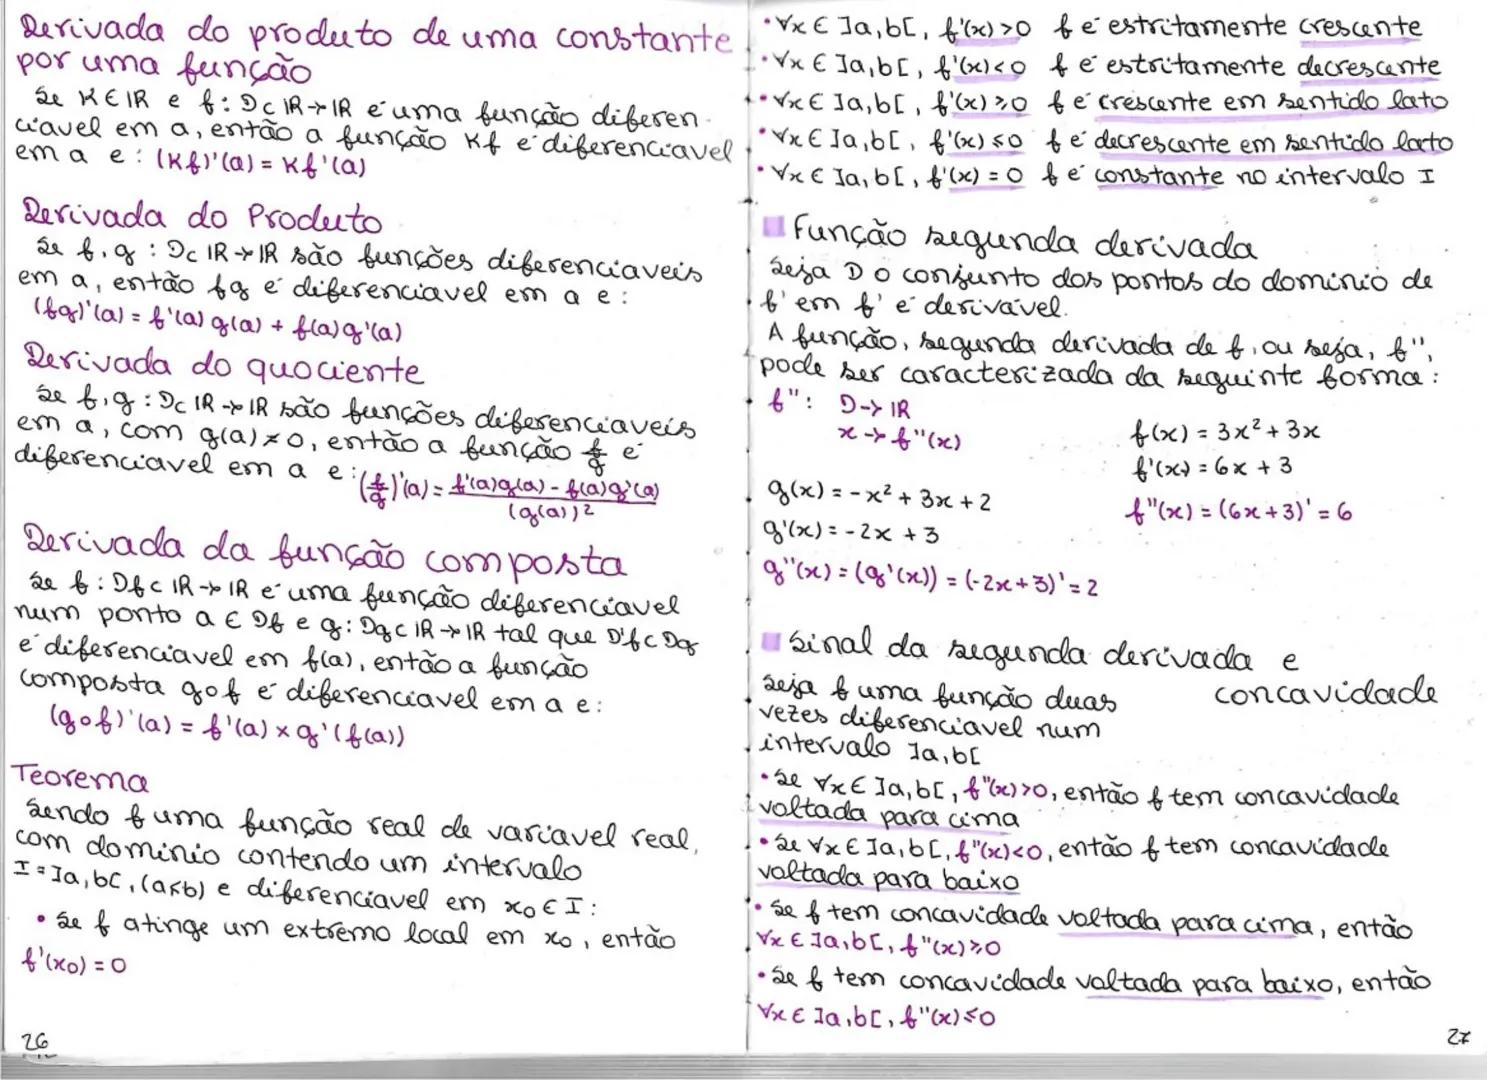 Derivada do produto de uma constante
por uma função
Se K∈IR e f: D⊂IR→IR é uma função diferen-
ciavel em a, então a função Kf é diferenciavel
em a e: (Kf)'(a) = Kf'(a)
Derivada do Produto
Se f,g : D⊂IR→IR são funções diferenciaveis
em a, então fg é diferenciavel em a e:
(fg)'(a) = f'(a) g(a) + f(a) g'(a)
Derivada do quociente
Se f,g : D⊂IR→IR são funções diferenciaveis
em a, com g(a)≠0, então a função f/g é
diferenciavel em a e: (f/g)'(a) = f'(a)g(a) - f(a)g'(a) / (g(a))²
Derivada da função composta
Se f: Df⊂IR→IR é uma função diferenciavel
num ponto a∈Df e g: Dg⊂IR→IR tal que D'f⊂Dg
é diferenciavel em f(a), então a função
composta gof é diferenciavel em a e:
(gof)'(a) = f'(a) × g'(f(a))
Teorema
Sendo f uma função real de variavel real,
com dominio contendo um intervalo
I=]a,b[, (a<b) e diferenciavel em x₀∈I:
• Se f atinge um extremo local em x₀, então
f'(x₀) = 0
26
• ∀x∈]a,b[, f'(x)>0 f é estritamente crescente
• ∀x∈]a,b[, f'(x)<0 f é estritamente decrescente
• ∀x∈]a,b[, f'(x)≥0 f é crescente em sentido lato
• ∀x∈]a,b[, f'(x)≤0 f é decrescente em sentido lato
• ∀x∈]a,b[, f'(x)=0 f é constante no intervalo I
Função segunda derivada
Seja D o conjunto dos pontos do dominio de
f' em f' é derivável.
A função, segunda derivada de f, ou seja, f'',
pode ser caracterizada da seguinte forma:
f'': D→IR
x→f''(x)
f(x) = 3x²+3x
f'(x) = 6x+3
f''(x) = (6x+3)' = 6
g(x) = -x²+3x+2
g'(x) = -2x+3
g''(x) = (g'(x)) = (-2x+3)' = 2
Sinal da segunda derivada e
concavidade
Seja f uma função duas
vezes diferenciavel num
intervalo ]a,b[
• Se ∀x∈]a,b[, f''(x)>0, então f tem concavidade
voltada para cima
• Se ∀x∈]a,b[, f''(x)<0, então f tem concavidade
voltada para baixo
• Se f tem concavidade voltada para cima, então
∀x∈]a,b[, f''(x)≥0
• Se f tem concavidade voltada para baixo, então
∀x∈]a,b[, f''(x)≤0
27